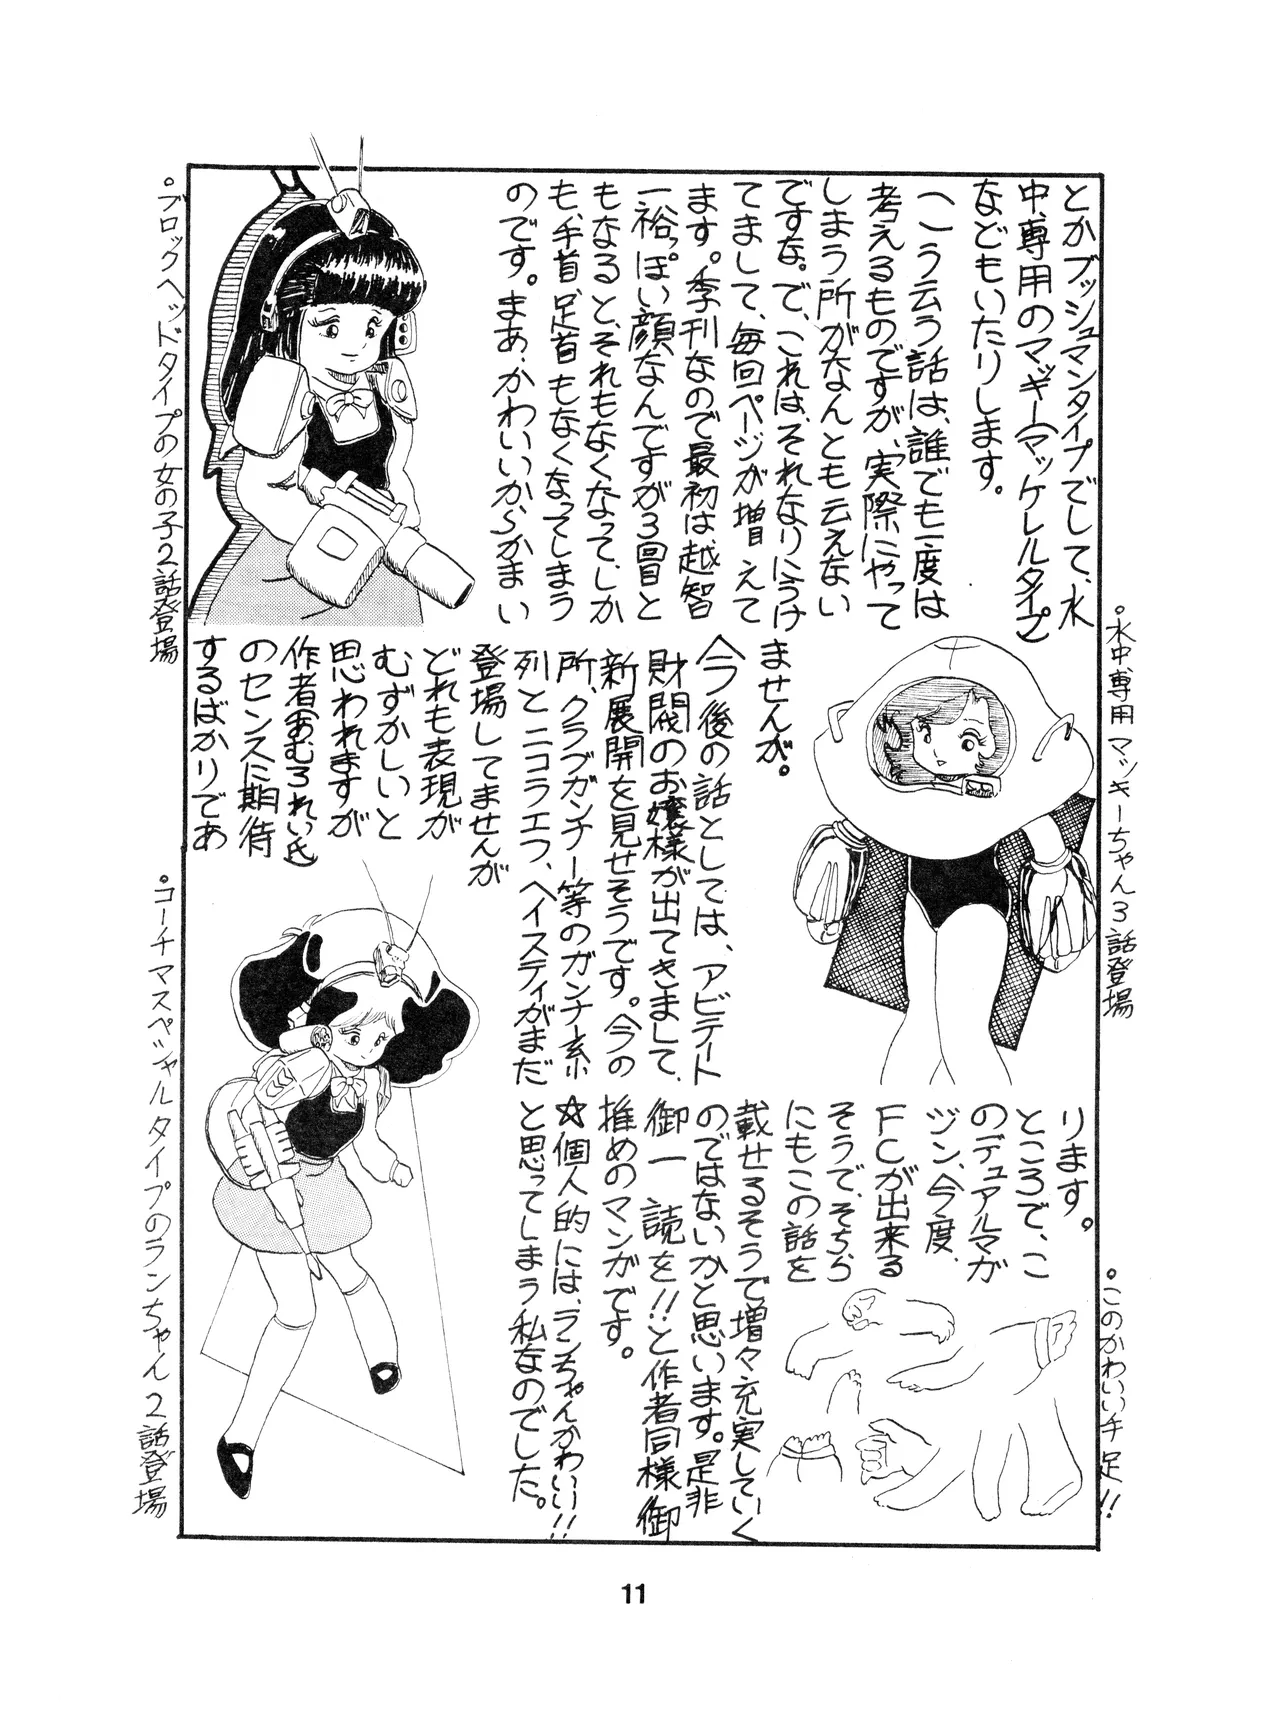 とかブッシュマンタイプでして、水
中、専用のマッギー(マッケレルタイプ)
などもいたりします。
へこう云う話は、誰でも一度は
考えるものですが、実際にやって
しまう所がなんとも云えない
ですな。で、これは、それなりにうけ
てまして、毎回ページが増えて
ます。季刊なので最初は越智
一裕っぽい顔なんですが3回目と
もなると、それもなくなって、しか
も、手首、足首もなくなってしまう
のです。まあ、かわいいから、かまい
ませんが。
今後の話としては、アビテート
財閥のお嬢様が出てきまして、
新展開を見せそうです。今の
所、クラブガンナー等のガンナー系
列とニコラエフ、ヘイスティがまだ
登場してませんが
どれも表現が
むずかしいと
思われますが
作者(あむろれい氏)
のセンスに期待
するばかりであ
ります。
ところで、こ
のデュアルマガ
ジン、今度、
FCが出来る
そうで、そちら
にもこの話を
載せるそうで増々充実していく
のではないかと思います。是非
御一読を!!と作者同様御
推めのマンガです。
☆個人的には、ランちゃんかわいい!!
と思ってしまう私なのでした。
°ブロックヘッドタイプの女の子2話登場
°水中専用マッキーちゃん3話登場
°コーチマスペシャルタイプのランちゃん2話登場
°このかわいい手足!!
11